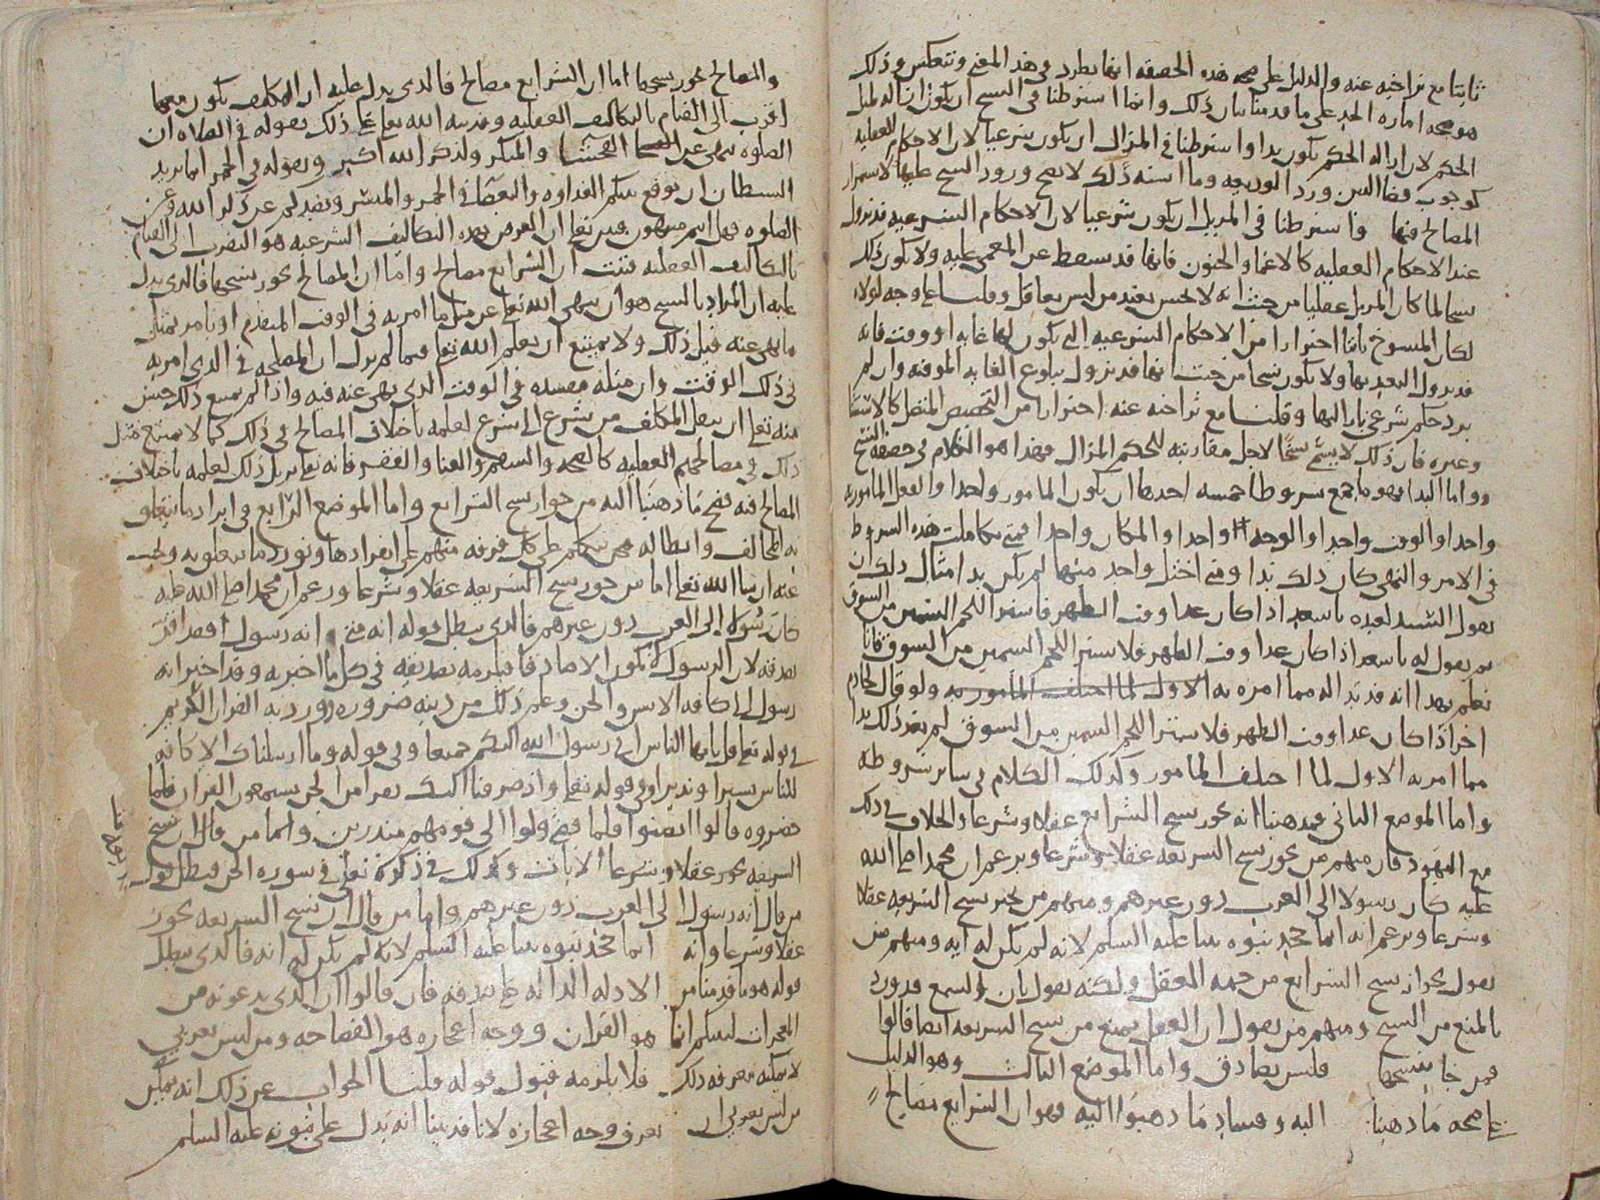 ثابتا مع تراخيه عنه والدليل على صحه هذه الحقيقه انها تطرد في هذا المعنى وتنعكس وذلك
هو صحه اماره الحد على ما قدمنا بيان ذلك وانما اشترطنا في النسخ ان يكون ازاله لمثل
الحكم لان ازاله الحكم يكون بدا واشترطنا في المزال ان يكون شرعيا لان الاحكام العقليه
كوجوب قضا الدين ورد الوديعه وما اشبه ذلك لا يصح ورود النسخ عليها لاستمرار
المصالح فيها وانما اشترطنا في المزيل ان يكون شرعيا لان الاحكام الشرعيه قد تزول
عند الاحكام العقليه كالاغما والجنون فانها قد تسقط عن المغمى عليه ولا يكون ذلك
نسخا لما كان المزيل عقليا من حيث انه لا يحسن تعبد من ليس بعاقل وقلنا على وجه لولاه
لكان المنسوخ ثابتا احترازا من الاحكام الشرعيه التي يكون لها غايه او وقت فانه
قد يزول التعبد بها ولا يكون نسخا من حيث انها قد تزول ببلوغ الغايه الموقته وان لم
يرد حكم شرعي بازالتها وقلنا مع تراخيه عنه احترازا من التخصيص المتصل كالاستثنا
وغيره فان ذلك لا يسمى نسخا لاجل مقارنته للحكم المزال فهذا هو الكلام في حقيقه النسخ
واما البدا فهو ما جمع شروطا خمسه احدها ان يكون المامور واحدا والفعل المامور به
واحدا والوقت واحدا والوجه واحدا والمكان واحدا فمتى تكاملت هذه الشروط
في الامر والنهي كان ذلك بدا ومتى اختل واحد منها لم يكن بدا مثال ذلك ان
يقول السيد لعبده يا سعيد اذا كان غدا وقت الظهر فاشتر اللحم السمين من السوق
ثم يقول له يا سعيد اذا كان غدا وقت الظهر فلا تشتر اللحم السمين من السوق فانا
نعلم بهذا انه قد بدا له مما امره به الاول لما اختلف المامور به ولو قال لخادم
اخر اذا كان غدا وقت الظهر فلا تشتر اللحم السمين من السوق لم يعد ذلك بدا
مما امر به الاول لما اختلف المامور وكذلك الكلام في ساير شروطه
واما الموضع الثاني فمذهبنا انه يجوز نسخ الشرايع عقلا وشرعا والخلاف في ذلك
مع اليهود فان منهم من يجوز نسخ الشريعه عقلا وشرعا ويزعم ان محمدا صلى الله
عليه كان رسولا الى العرب دون غيرهم ومنهم من يجيز نسخ الشريعه عقلا
وشرعا ويزعم انه انما جحد نبوه نبينا عليه السلم لانه لم يكن له ايه ومنهم من
يقول بجواز نسخ الشرايع من جهه العقل ولكنه يقول بان السمع قد ورد
بالمنع من النسخ ومنهم من يقول ان العقل يمنع من نسخ الشريعه ايضا قالوا
فمن جا بنسخها فليس بصادق واما الموضع الثالث وهو الدليل
على صحه ما ذهبنا اليه وفساد ما ذهبوا اليه فهو ان الشرايع مصالح
والمصالح يجوز نسخها اما ان الشرايع مصالح فالذي يدل عليه ان المكلف يكون معها
اقرب الى القيام بالتكاليف العقليه وقد نبه الله تعالى على ذلك بقوله في الصلاه ان
الصلوه تنهى عن الفحشا والمنكر ولذكر الله اكبر وبقوله في الخمر انما يريد
الشيطان ان يوقع بينكم العداوه والبغضا في الخمر والميسر ويصدكم عن ذكر الله وعن
الصلوه فهل انتم منتهون فبين تعالى ان الغرض بهذه التكاليف الشرعيه هو التقرب الى القيام
بالتكاليف العقليه فثبت ان الشرايع مصالح واما ان المصالح يجوز نسخها فالذي يدل
عليه ان المراد بالنسخ هو ان ينهى الله تعالى عن مثل ما امر به في الوقت المتقدم او يامر بمثل
ما نهى عنه قبل ذلك ولا يمتنع ان يعلم الله تعالى فيما لم يزل ان المصلحه في الذي امر به
في ذلك الوقت وان مثله مفسده في الوقت الذي نهى عنه فيه واذا لم يمتنع ذلك حسن
منه تعالى ان ينقل المكلف من شرع الى شرع لعلمه باختلاف المصالح في ذلك كما لا يمتنع مثل
ذلك في مصالحهم العقليه كالصحه والسقم والغنا والفقر فانه تعالى يزيل ذلك لعلمه باختلاف
المصالح فيه فصح ما ذهبنا اليه من جواز نسخ الشرايع واما الموضع الرابع في ايراد ما يتعلق
به المخالف وابطاله فنحن نتكلم على كل فرقه منهم على انفرادها ونورد ما يتعلقون به ونجيب
عنه ان شا الله تعالى اما من جوز نسخ الشريعه عقلا وشرعا وزعم ان محمدا صلى الله عليه
كان رسولا الى العرب دون غيرهم فالذي يبطل قوله انه متى انه رسول فقد اقر
بصدقه لان الرسول لا يكون الا صادقا فيلزمه تصديقه في كل ما اخبر به وقد اخبر انه
رسول الى كافه الانس والجن وعلم ذلك من دينه ضروره وورد به القران الكريم
في قوله تعالى قل يايها الناس اني رسول الله اليكم جميعا وفي قوله وما ارسلناك الا كافه
للناس بشيرا ونذيرا وفي قوله تعالى واذ صرفنا اليك نفرا من الجن يستمعون القران فلما
حضروه قالوا انصتوا فلما قضي ولوا الى قومهم منذرين واما من قال ان نسخ
الشريعه يجوز عقلا وشرعا الايات وكذلك في ذكره تعالى في سوره الجن فبطل قول
من قال انه رسول الى العرب دون غيرهم واما من قال ان نسخ الشريعه يجوز
عقلا وشرعا وانه انما جحد نبوه نبينا عليه السلم لانه لم يكن له ايه فالذي يبطل
قوله هو ما قدمنا من الادله الداله على صدقه فان قالوا ان الذي يدعونه من
المعجزات لنبيكم انما هو القران ووجه اعجازه هو الفصاحه ومن ليس بعربي
لا يمكنه معرفه ذلك فلا يلزمه قبول قوله قلنا الجواب عن ذلك انه يمكن
من ليس بعربي ان يعرف وجه اعجازه لانا قد بينا انه يدل على نبوته عليه السلم